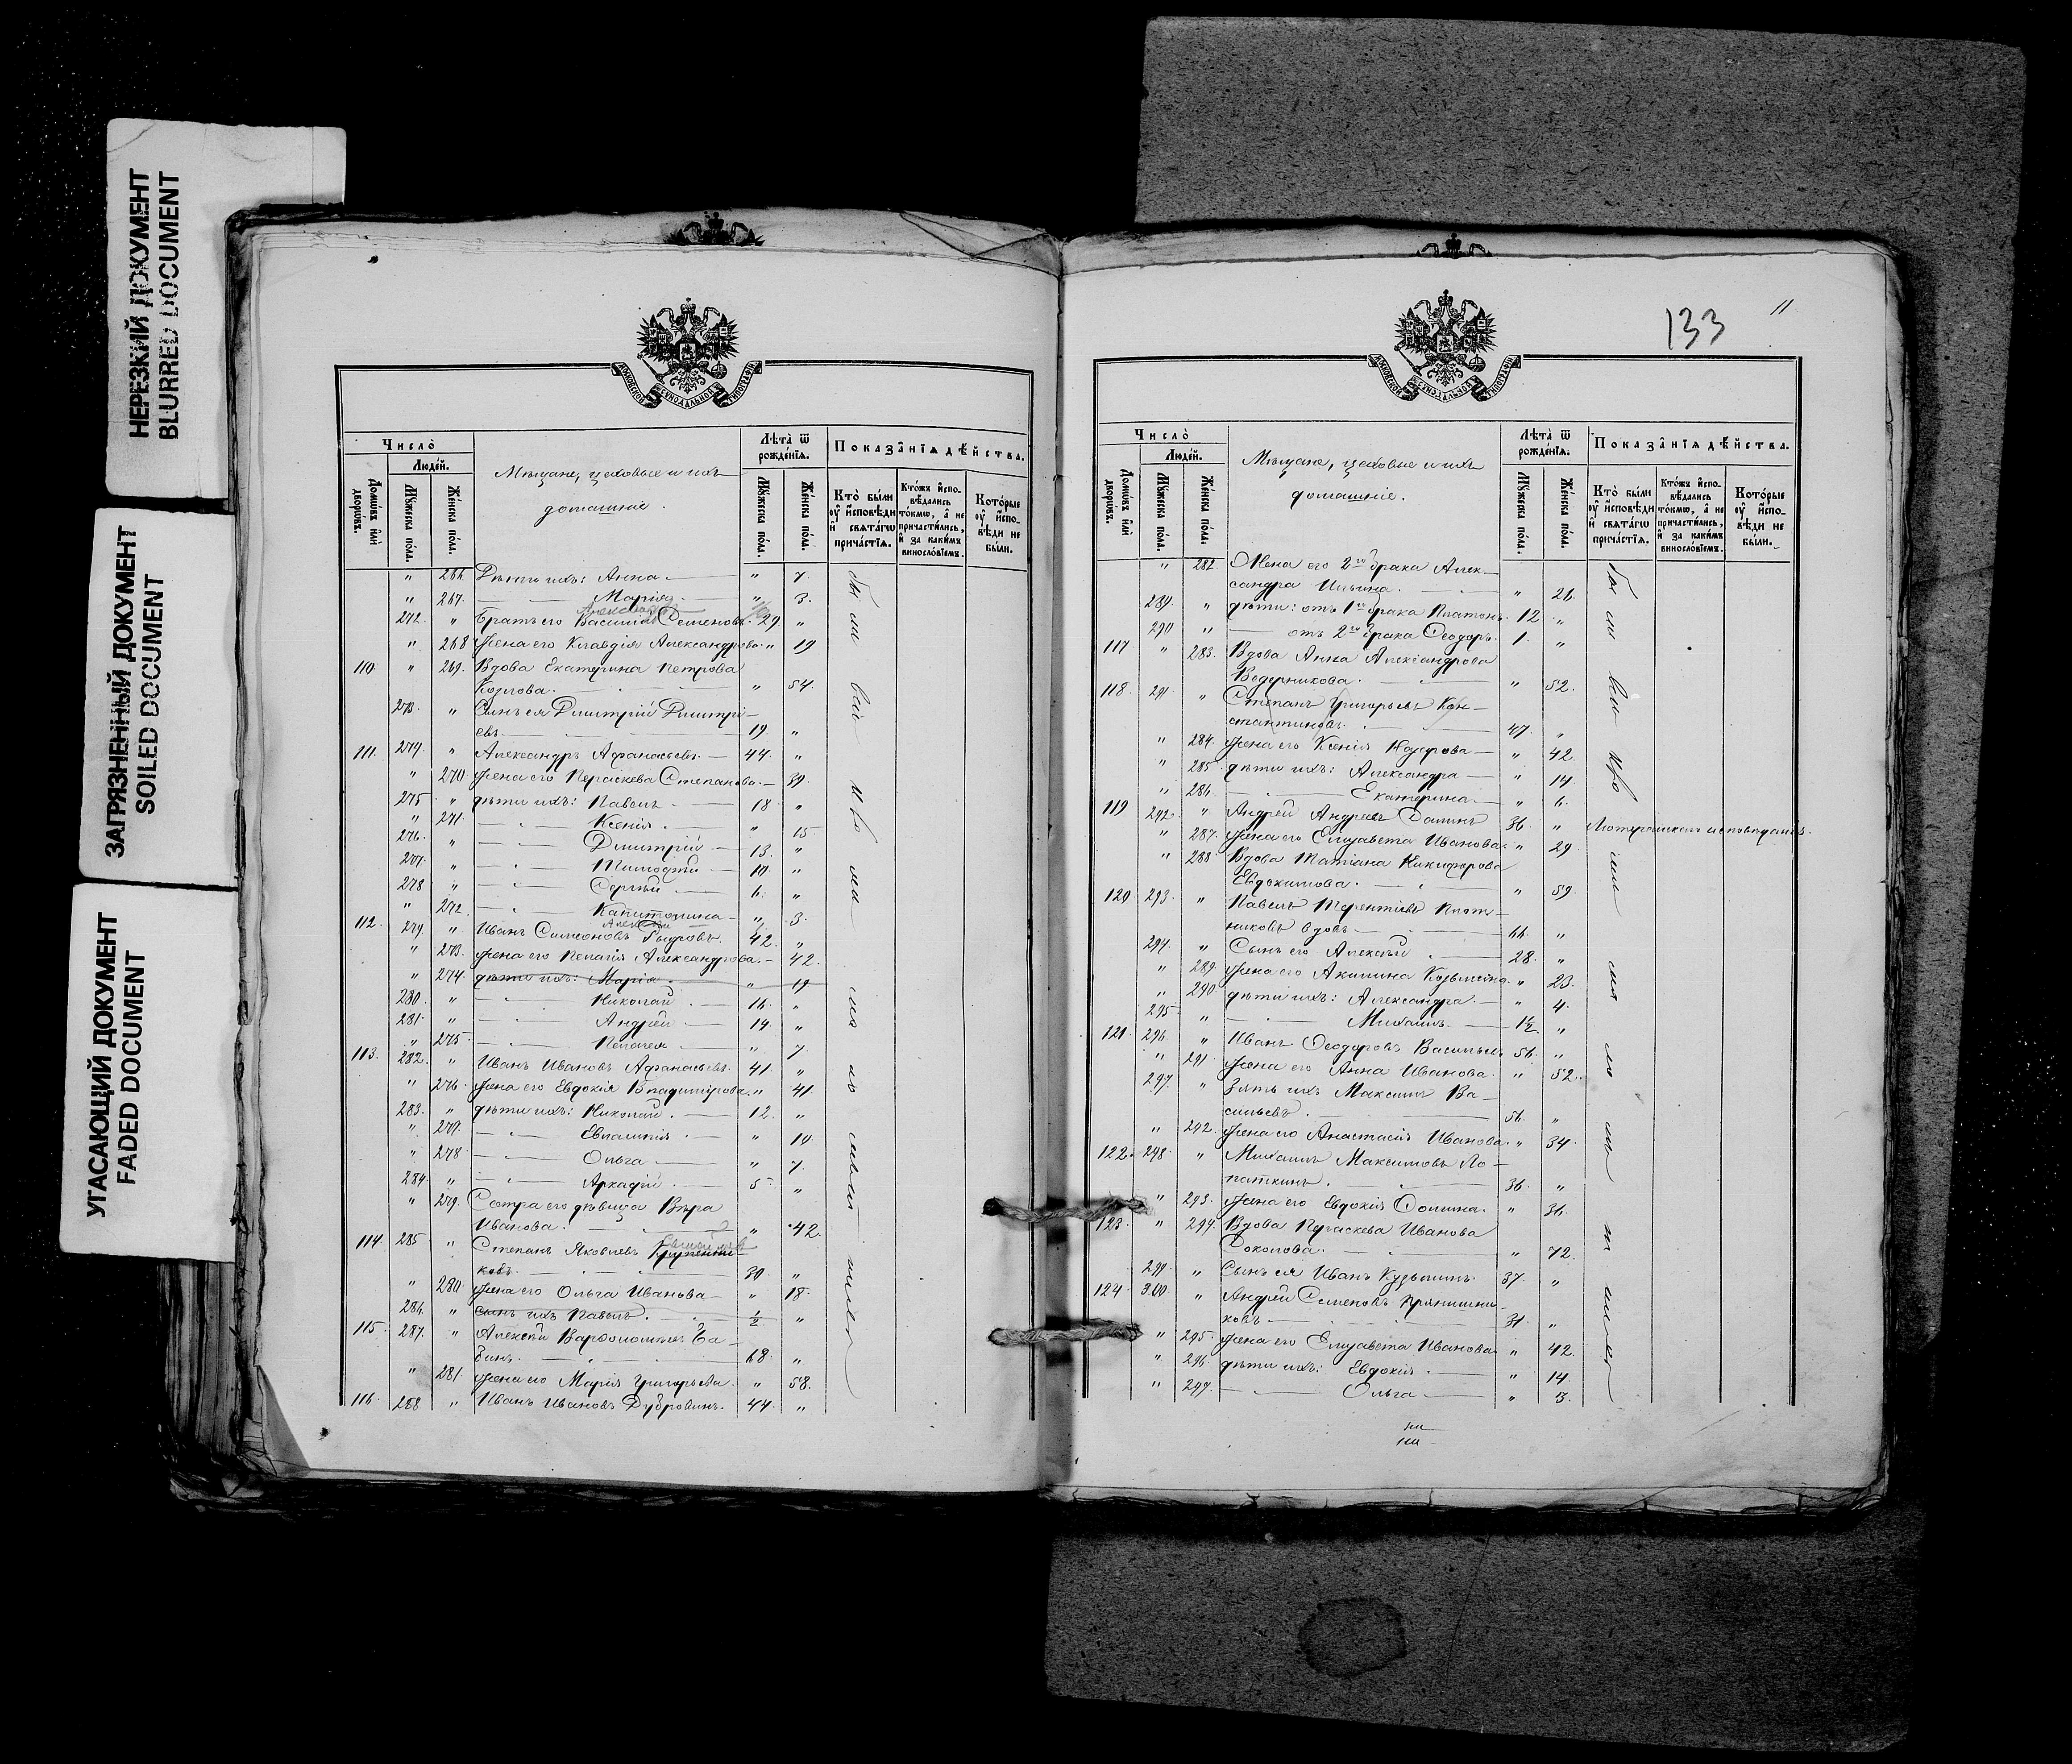 НЕРЕЗКИЙ ДОКУМЕНТ
BLURRED DOCUMENT
ЗАГРЯЗНЕННЫЙ ДОКУМЕНТ
SOILED DOCUMENT
УГАСАЮЩИЙ ДОКУМЕНТ
FADED DOCUMENT
Число̀
Люде́й.
Домѡ́въ и҆лѝ дворѡ́въ.
Мꙋ́жеска по́ла.
Же́нска по́ла.
Мѣщане, цеховые и ихъ
домашніе.
Лѣта̀ ѿ рожде́нїѧ.
Мꙋ́жеска по́ла.
Же́нска по́ла.
Показа̑нїѧ дѣ́йства.
Кто̀ бы́ли оу҆ и҆́сповѣди и҆ свѧта́гѡ прича́стїѧ.
Кто́жъ и҆спо-вѣ́дались то́кмѡ, а҆ не причасти́лись, и҆ за каки́мъ винословїемъ.
Кото́рые оу҆ и҆́спо-вѣди не бы́ли.
" 266. Дѣти ихъ: Анна — " 7.
" 267. — Марія — " 3.
272. " Братъ его Василій Семеновъ. 29 "
" 268 Жена его Клавдія Александрова. " 19
110. " 269. Вдова Екатерина Петрова
Козлова. — " 54.
273. " Сынъ ея Дмитрій Дмитрі-
евъ. — 19. "
111. 274. " Александръ Афанасьевъ. — 44. "
" 270 Жена его Параскева Степанова. — 39.
275 " дѣти ихъ: Павелъ. — 18 "
" 271. — Ксенія. — " 15
276. " — Дмитрій — 13. "
277. " — Тимофей — 10. "
278 " — Сергѣй. — 6. "
" 272. — Капитолина — " 3.
112. 279. " Иванъ Симеоновъ 42. "
" 273. Жена его Пелагія Александрова. — 42.
" 274. дѣти ихъ: Марія — " 19
280. " — Николай. — 16. "
281. " — Андрей — 14. "
" 275. — Пелагея — " 7.
113. 282. " Иванъ Ивановъ Афанасьевъ. 41. "
" 276. Жена его Евдокія Владимірова. " 41.
283. " дѣти ихъ: Николай. — 12. "
" 277. — Евлампія. — " 10.
" 278 — Ольга — " 7.
284. " — Аркадій — 5. "
" 279. Сестра его дѣвица Вѣра
Иванова. — " 42.
114. 285 " Степанъ Яковлевъ
ковъ — 30 "
" 280. Жена его Ольга Иванова — " 18.
286. " сынъ ихъ Павелъ. ½ "
115. 287. " Алексѣй Варѳоломеевъ Ба-
бинъ. — 68. "
" 281. Жена его Марія Григорьева. " 58.
116. 288 " Иванъ Ивановъ Дубровинъ. 44. "
133
11
Число̀
Люде́й.
Домѡ́въ и҆лѝ дворѡ́въ.
Мꙋ́жеска по́ла.
Же́нска по́ла.
Мѣщане, цеховые и ихъ
домашніе.
Лѣта̀ ѿ рожде́нїѧ.
Мꙋ́жеска по́ла.
Же́нска по́ла.
Показа̑нїѧ дѣ́йства.
Кто̀ бы́ли оу҆ и҆́сповѣди и҆ свѧта́гѡ прича́стїѧ.
Кто́жъ и҆спо-вѣ́дались то́кмѡ, а҆ не причасти́лись, и҆ за каки́мъ винословїемъ.
Кото́рые оу҆ и҆́спо-вѣди не бы́ли.
" 282. Жена его 2го брака Алек-
сандра Ильина. — " 26.
289. " дѣти: отъ 1го брака Платонъ. 12 "
290 " — отъ 2го брака Ѳеодоръ. 1. "
117 " 283. Вдова Анна Александрова
Ведерникова. — " 52.
118. 291. " Степанъ Григорьевъ Кон-
стантиновъ. — 47. "
" 284. Жена его Ксенія — " 42
" 285. дѣти ихъ: Александра — " 14
" 286. — Екатерина. — " 6.
119 292. " Андрей Андреевъ 36. " Лютеранскаго исповѣданія.
" 287. Жена его Елизавета Иванова. " 29
" 288. Вдова Татіана Никифорова
Евдокимова. — " 59.
120 293. " Павелъ Терентіевъ Плот-
никовъ вдовъ — 66. "
294. " Сынъ его Алексѣй — 28. "
" 289. Жена его Акилина Козьмина. " 23.
" 290. дѣти ихъ: Александра. — " 4.
295 " — Михаилъ. — 1½ "
121. 296. " Иванъ Ѳеодоровъ Васильевъ 56. "
" 291. Жена его Анна Иванова. " 52.
297. " Зять ихъ Максимъ Ва-
сильевъ. — 56. "
" 292. Жена его Анастасія Иванова. " 34.
122. 298. " Михаилъ Максимовъ Ло-
паткинъ. — 36. "
" 293. Жена его Евдокія Ѳомина. " 36.
123. " 294. Вдова Параскева Иванова
Соколова. — " 72.
299. " Сынъ ея Иванъ Кузьминъ. 37. "
124 300 " Андрей Семеновъ Прянишни-
ковъ — 31. "
" 295. Жена его Елизавета Иванова " 42.
" 296. дѣти ихъ: Евдокія. — " 14.
" 297. — Ольга — " 3.